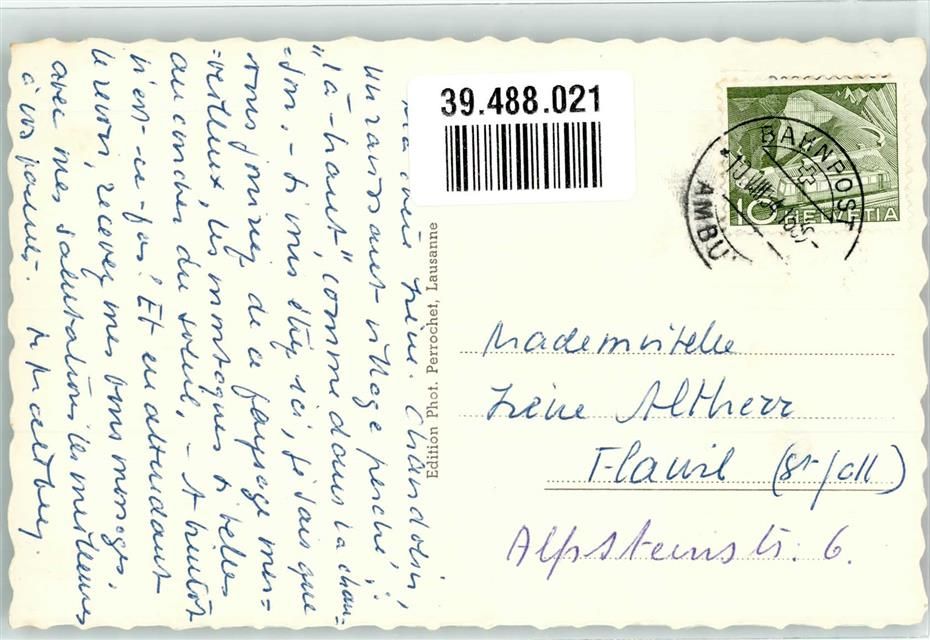 Ma chère Irène. Chandolin,
un ravissant village perché,
"là-haut" comme dans la chan-
son. - Si vous étiez ici, je sais que
vous jouiriez de ce paysage mer-
veilleux, les montagnes si belles
au coucher du soleil. - A bientôt
n'est-ce-pas! Et en attendant
le revoir, recevez mes bons messages.
avec mes salutations les meilleures
à vos parents.
39.488.021
Edition Phot. Perrochet, Lausanne
BAHNPOST
AMBU
10 HELVETIA
Mademoiselle
Irène Altherr
Flawil (St-Gall)
Alpsteinstr. 6.